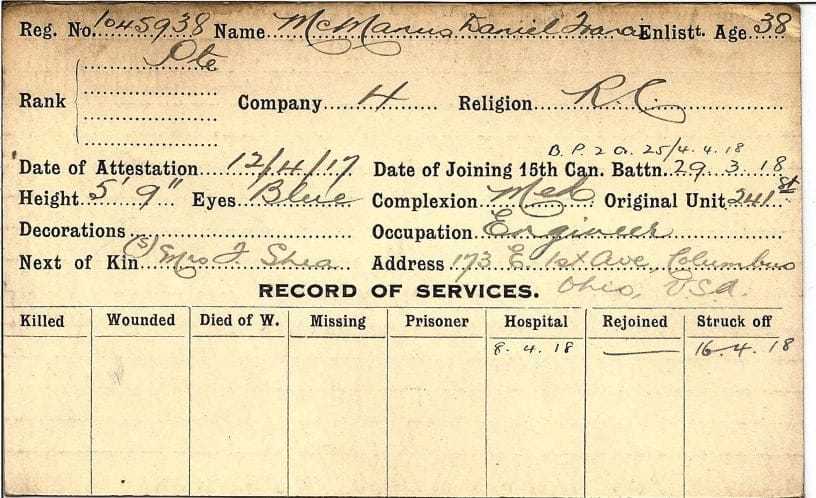 Reg. No. 1045938 Name McManus Daniel Enlistt. Age 38
Pte
Rank Company 4 Religion R.C.
B.P. 2 O. 25/4.4.18
Date of Attestation 12/4/17 Date of Joining 15th Can. Battn. 29.3.18
Height 5' 9" Eyes Blue Complexion Med Original Unit 241st
Decorations Occupation Engineer
Next of Kin (S) Mrs J. Shea Address 173 E. 1st Ave, Columbus
Ohio, USA.
RECORD OF SERVICES.
Killed Wounded Died of W. Missing Prisoner Hospital Rejoined Struck off
8.4.18 — 16.4.18